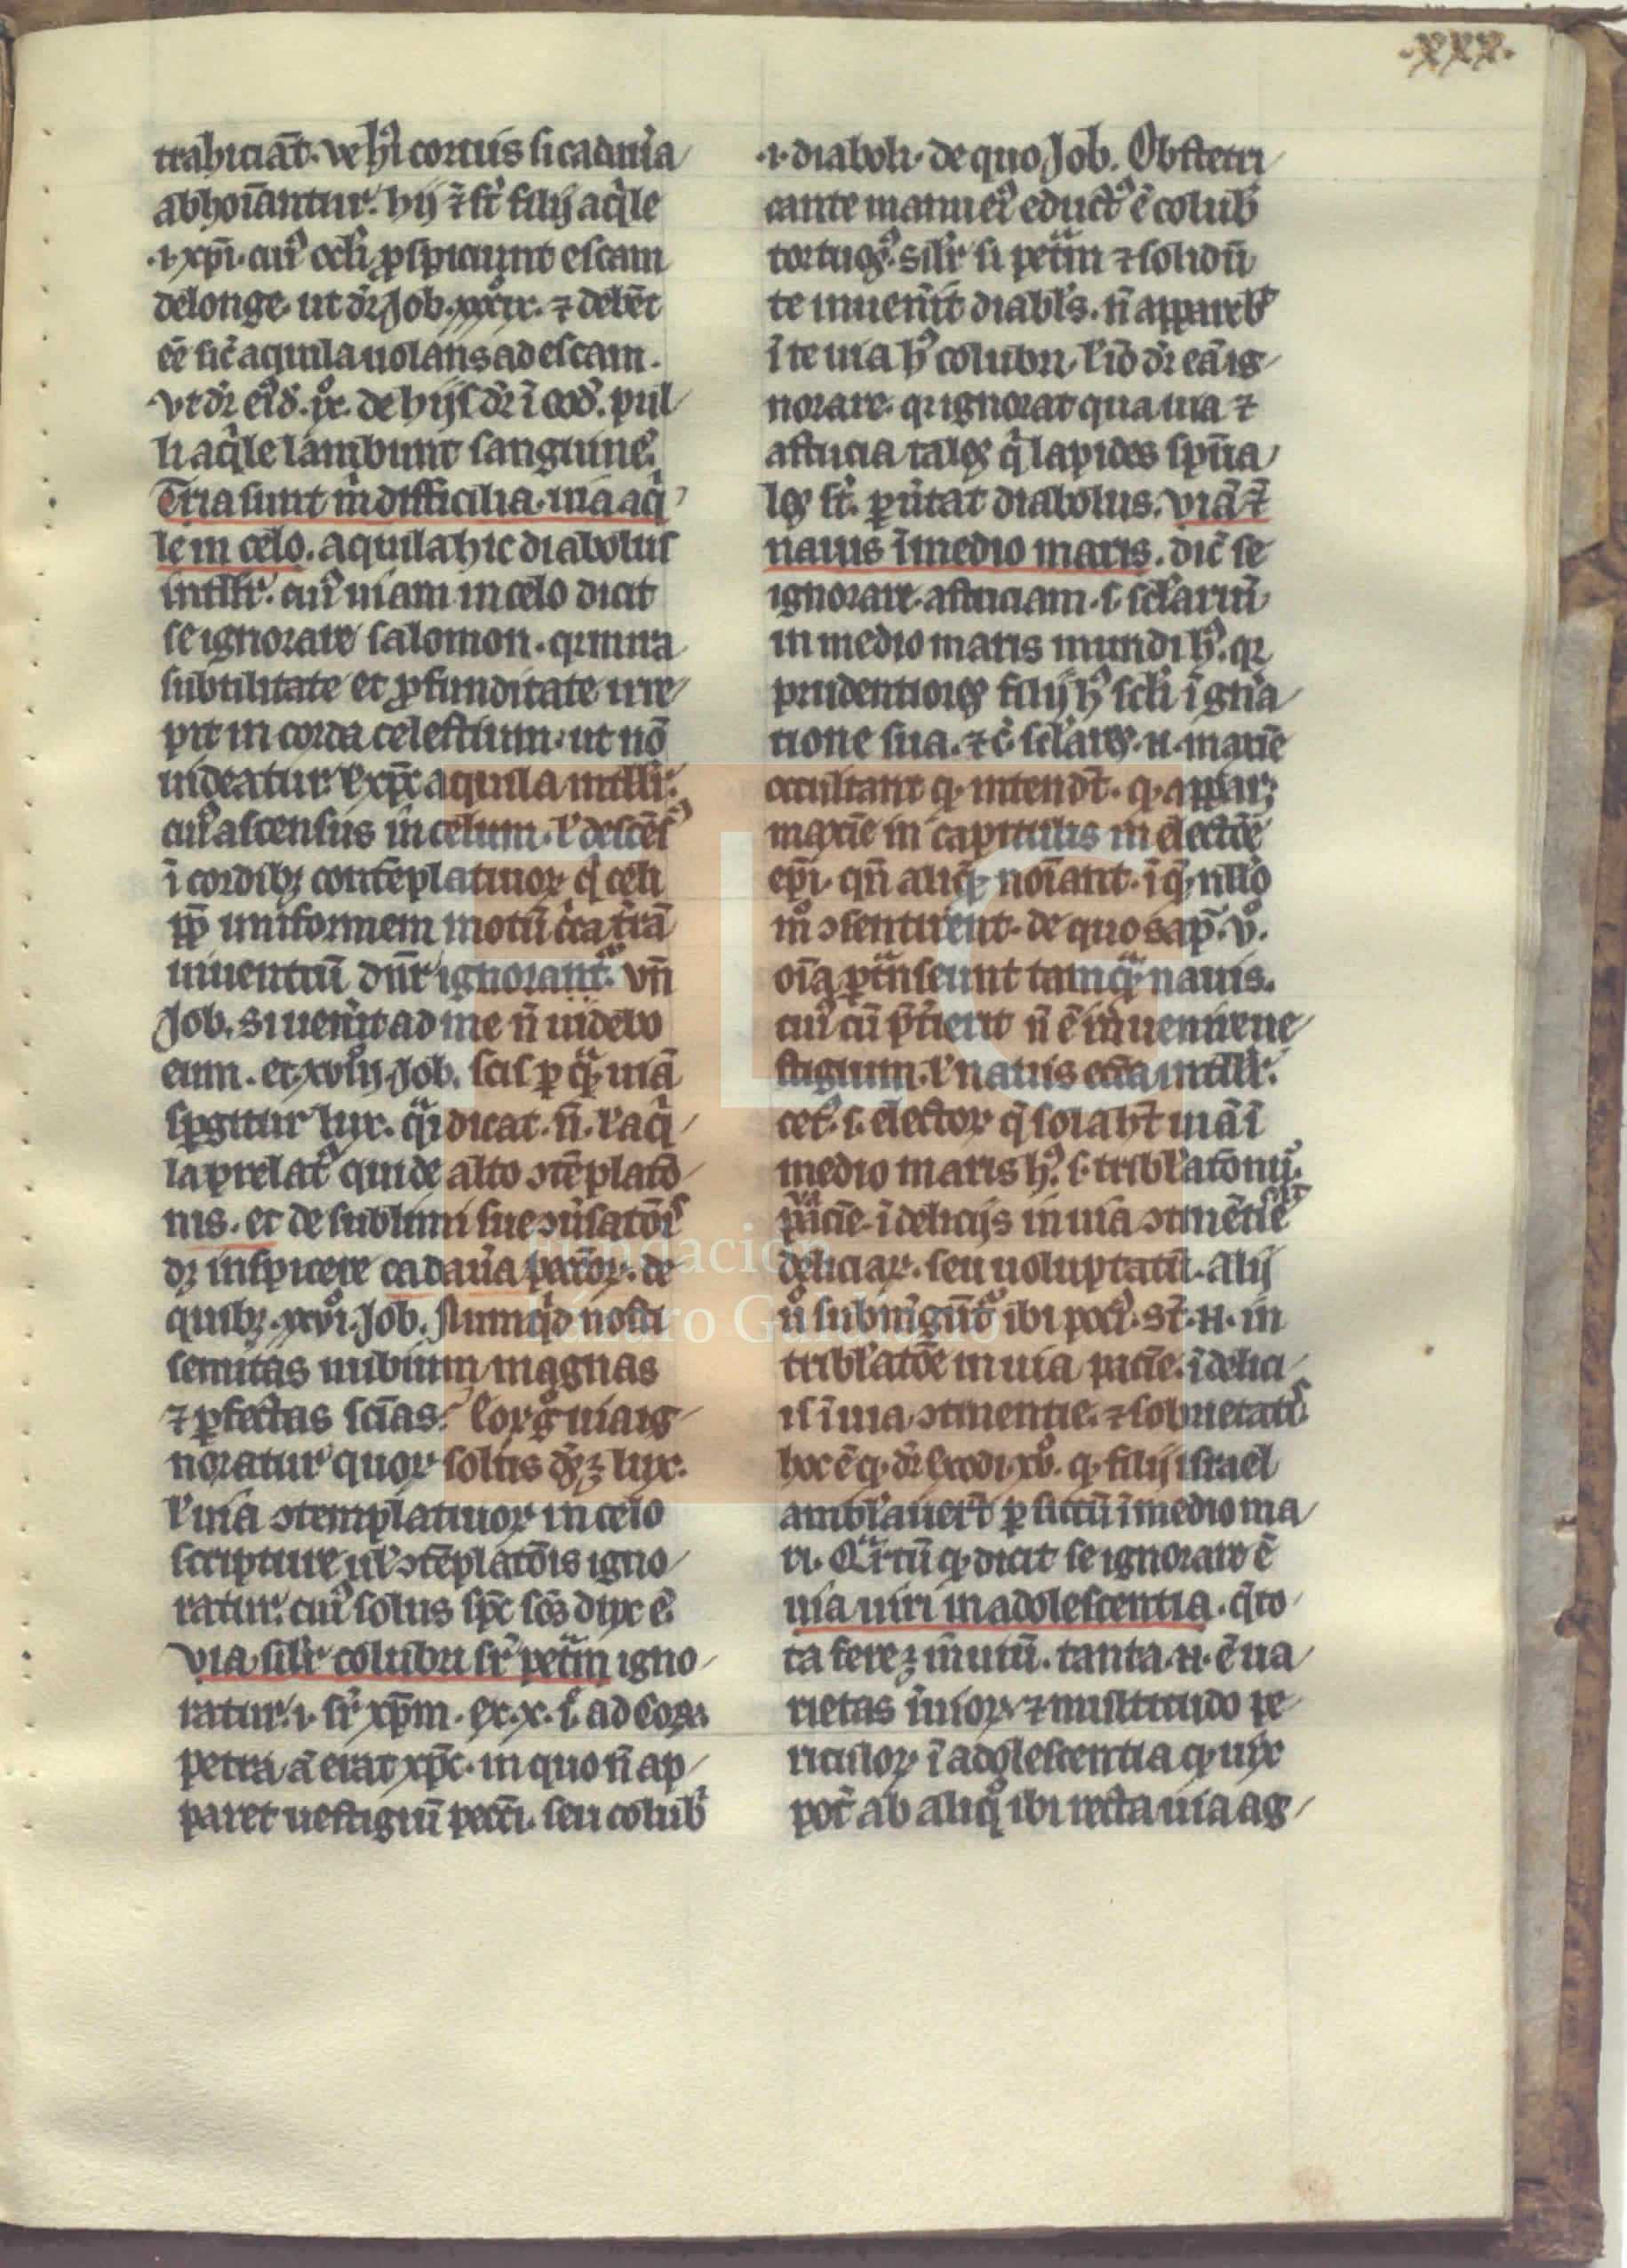 .xxx.
trahiciāt. ve hi coruis si cadaūa
abhoīantur. hij ē st filij aqͥle
.i. xpi. cuiꝰ ocli ꝓspiciunt escam
de longe. ut dr Job. xxxix. ⁊ debēt
eē sic̄ aquila uolans ad escam.
vt dr eiꝰd. ix. de hijs dr ī eod. pul
li aqͥle lambunt sanguinē.
Tria sunt m̄ difficilia. uia aqͥ
le in celo. aquila hic diabolus
intllr. cuiꝰ uiam in celo dicit
se ignorare salomon. qr mira
subtilitate et ꝓfunditate irre
pit in corda celestium. ut nō
uideatur. ł xp̄c aquila intllr.
cuiꝰ ascensus in celum. ł descēsꝰ
ī cordibꝫ contēplatiuoꝝ qͥ celi
ꝓp̄ uniformem motū cͥca t̄rā
iuuentiū dn̄r ignorantͬ. vn̄
Job. Si uenīt ad me n̄ uidebo
eum. et xxviij Job. scis ꝑ qͣ uiā
spgitur lux. qͣi dicat. n̄. ł aqͥ
la prelatͬ qui de alto ↄtēplatō
nis. et de sublimi sue ↄūsatōis
dꝫ inspicere cadaūa pctōꝝ. de
quibꝫ. xxxvi. Job. Numqͥd nosti
semitas nubium magnas
⁊ ꝑfectas scīas. hoꝝ ḡ uia ig
noratur quoꝝ solus dꝰ ꝫ lux.
ł uia ↄtemplatiuoꝝ in celo
scripture ul ↄtēplatōis igno
ratur. cuiꝰ solus spc̄ scō̄s dux ē.
via silr colubri sr̄ petͣm igno
ratur. i. sr̄ xp̄m. ex. x. i. ad Coꝝ.
petra aͫ erat xp̄c. in quo n̄ ap
paret uestigiū pcc̄i. seu colubͥ
.i. diaboli. de quo Job. Obstetri
cante manu eiꝰ eductꝰ ē colubͬ
tortuosꝰ. silr si petͣm ⁊ solidū
te inuenīt diablꝰs. n̄ apparebͭ
ī te uia hꝰ colubri. ł iō dr eā ig
norare. qr ignorat qua uia ⁊
astucia tales qͥ lapides spūa
les st. ꝑūtat diabolus. viā ē
nauis ī medio maris. dic̄ se
ignorare. astuciam. s. sclariū
in medio maris mundi hꝰ. qr
prudentiores filij hꝰ scli ī gn̄a
tione sua. ⁊c̄. sclares. n. maxīe
occultant qͩ intendt. qͩ apparꝫ
maxīe in capitulis in electōe
ep̄i. qn̄ aliqͫ noīant. ī qͫ nullo
mͦ ↄsentirent. de quo sap̄. vͦ.
oīa ꝑtͣnseunt tamqͣ nauis.
cuiꝰ cū p̄t̓ierit n̄ ē inuenire ue
stigium. ł nauis ecc̄a intllr.
cet. s. electoꝝ qͥ soła hꝫ uiā ī
medio maris hꝰ. s. tribłatōnū.
pacīe. ī delicijs in uia ↄtinētīe
deliciaꝝ. seu uoluptatū. Alij
uͦ submgūtͬ ibi pocͥ. st. n. in
tribłatōe in uia pacīe. ī delici
is ī uia ↄtinentie. ⁊ sobrietatīs
hoc ē qͩ dr Exodi. xvͦ. qͩ filij israel
ambłauerͭ ꝑ siccū ī medio ma
ri. Qͣrtū qͩ dicit se ignorare ē
uia uiri in adolescentia. qͥ to
ta fere ꝫ inutū. tanta. n. ē ua
rietas īuioꝝ ⁊ multitudo pe
riculoꝝ ī adolescentia qͩ uix
pot̄ ab aliqͦ ibi recta uia ag